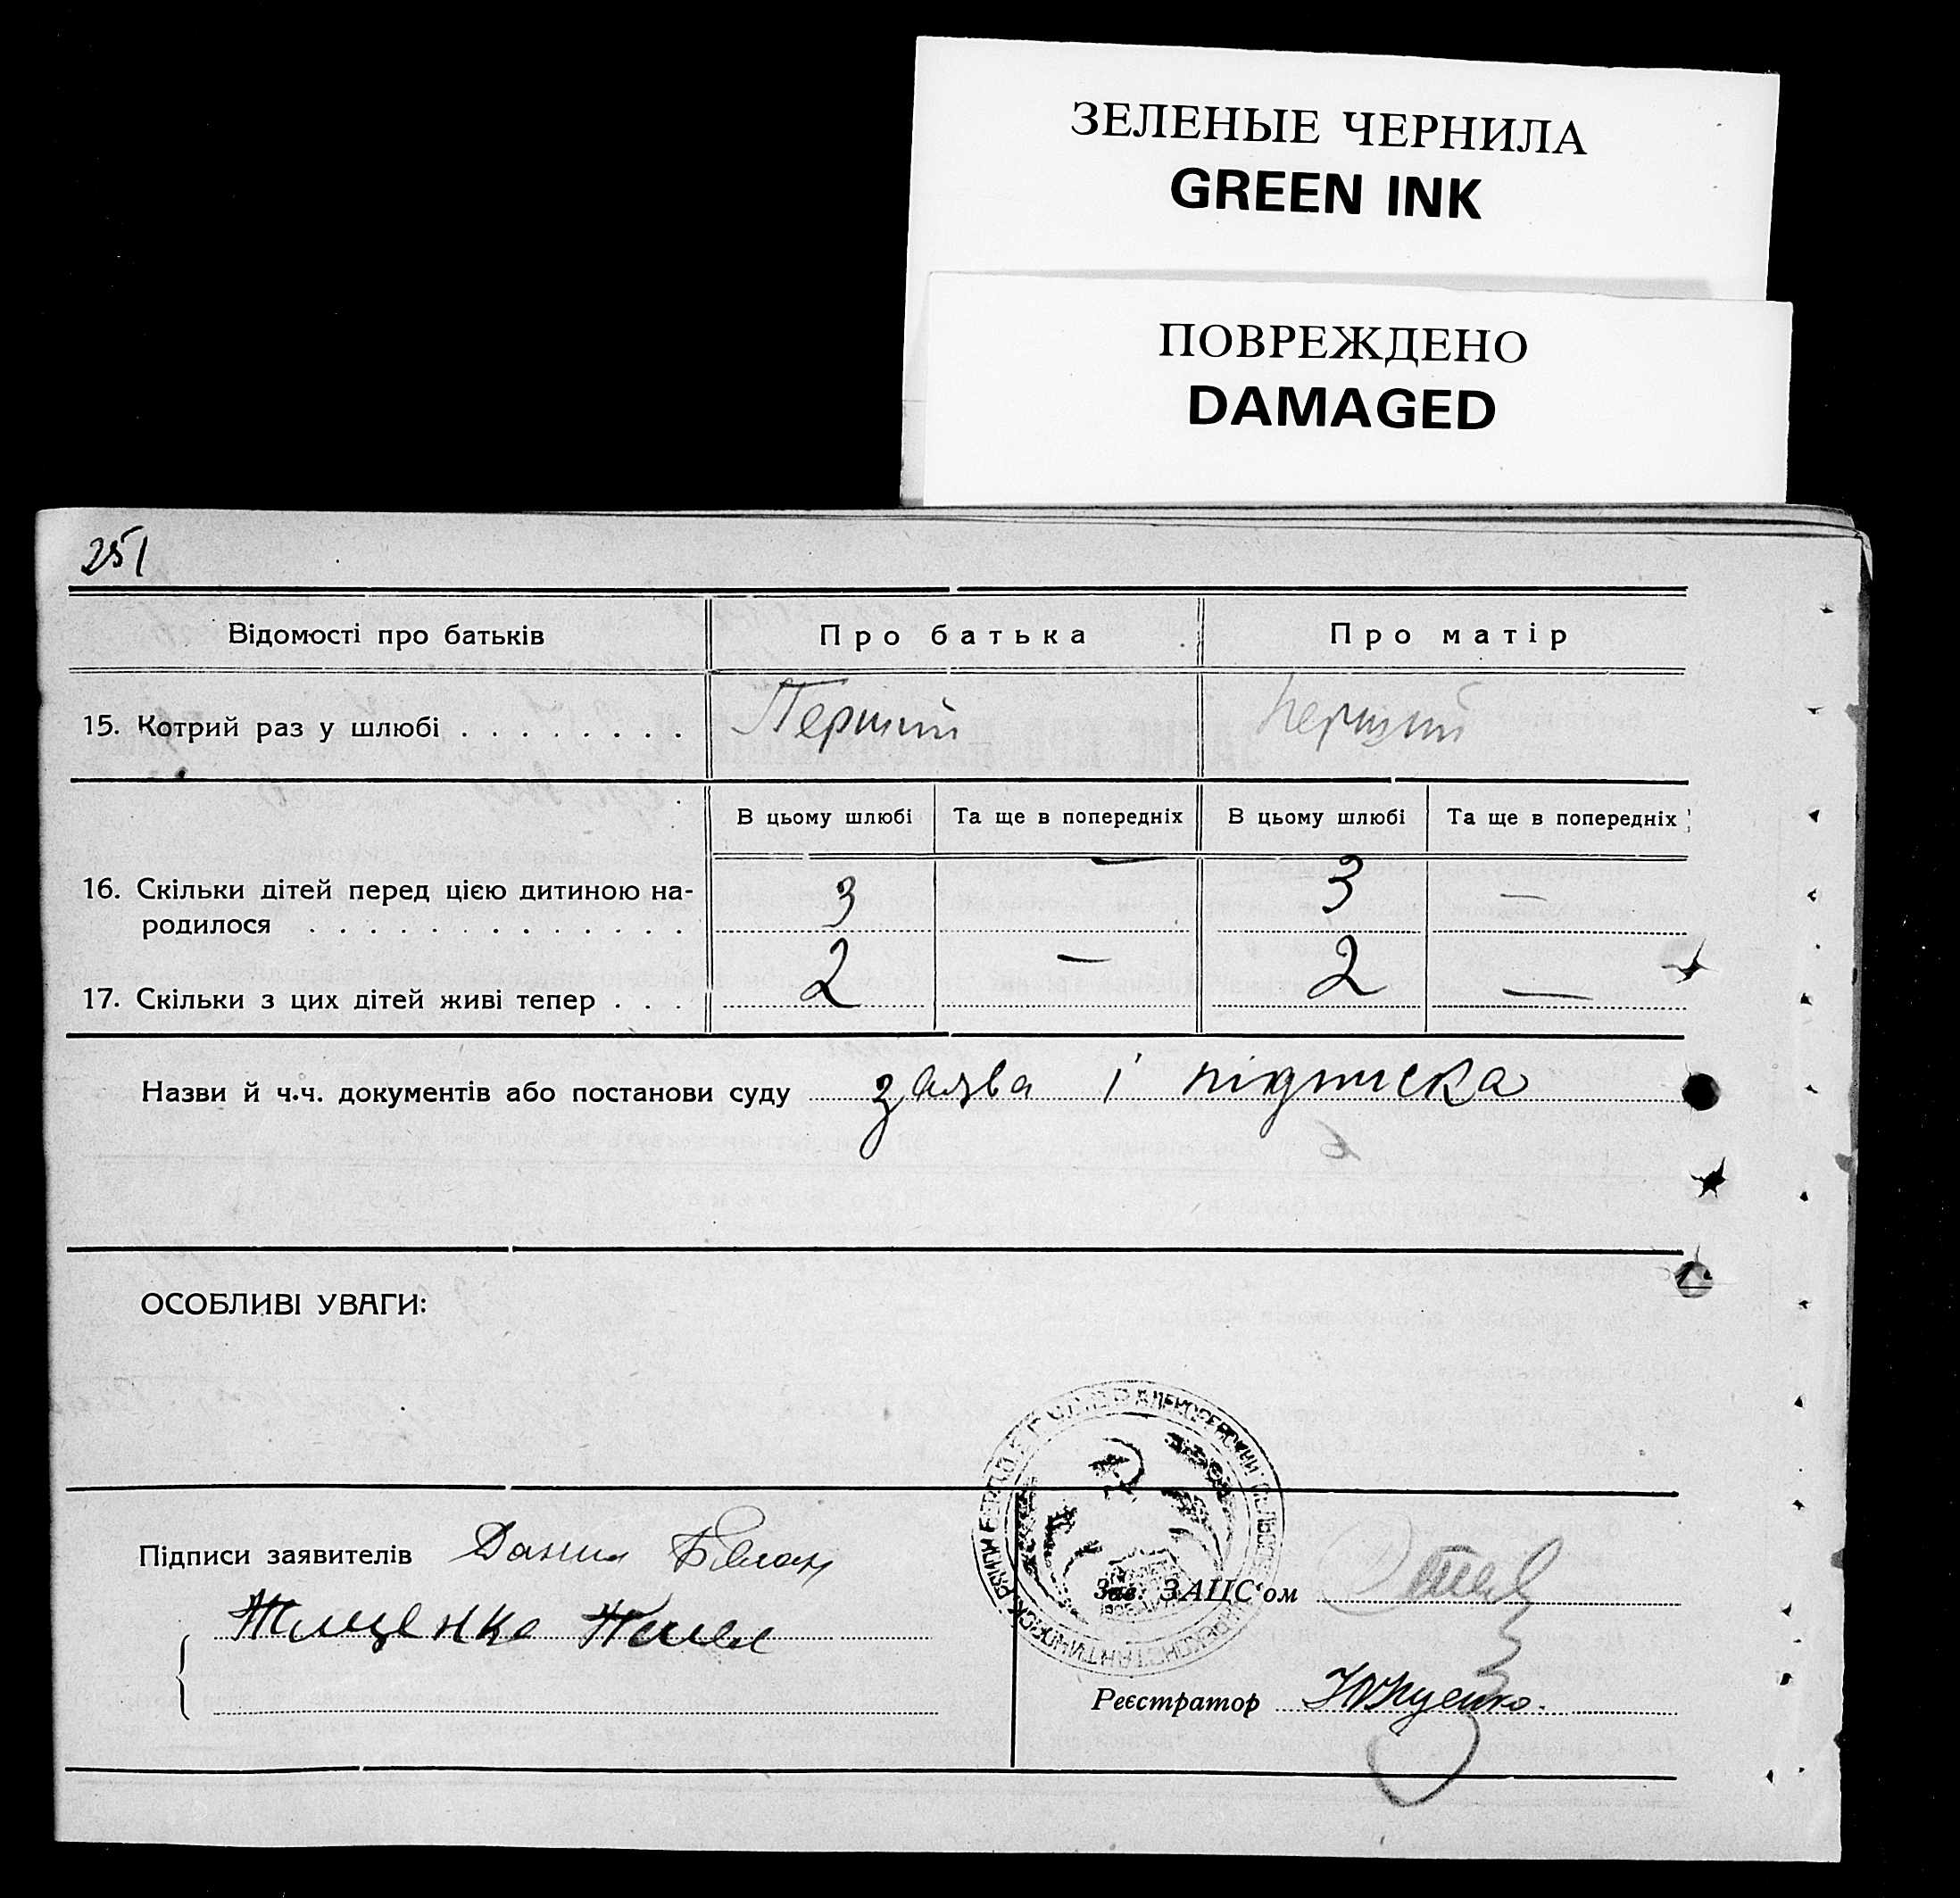 ЗЕЛЕНЫЕ ЧЕРНИЛА
GREEN INK
ПОВРЕЖДЕНО
DAMAGED
251
Відомості про батьків Про батька Про матір
15. Котрий раз у шлюбі . . . . . . . . Перший Перший
В цьому шлюбі Та ще в попередніх В цьому шлюбі Та ще в попередніх
16. Скільки дітей перед цією дитиною на- 3 — 3 —
родилося . . . . . . . . . . . . .
17. Скільки з цих дітей живі тепер . . . 2 — 2 —
Назви й ч.ч. документів або постанови суду заява і підписка
ОСОБЛИВІ УВАГИ:
Підписи заявителів Данил Белан
Зав. ЗАЦС‘ом
Тищенко
Реєстратор